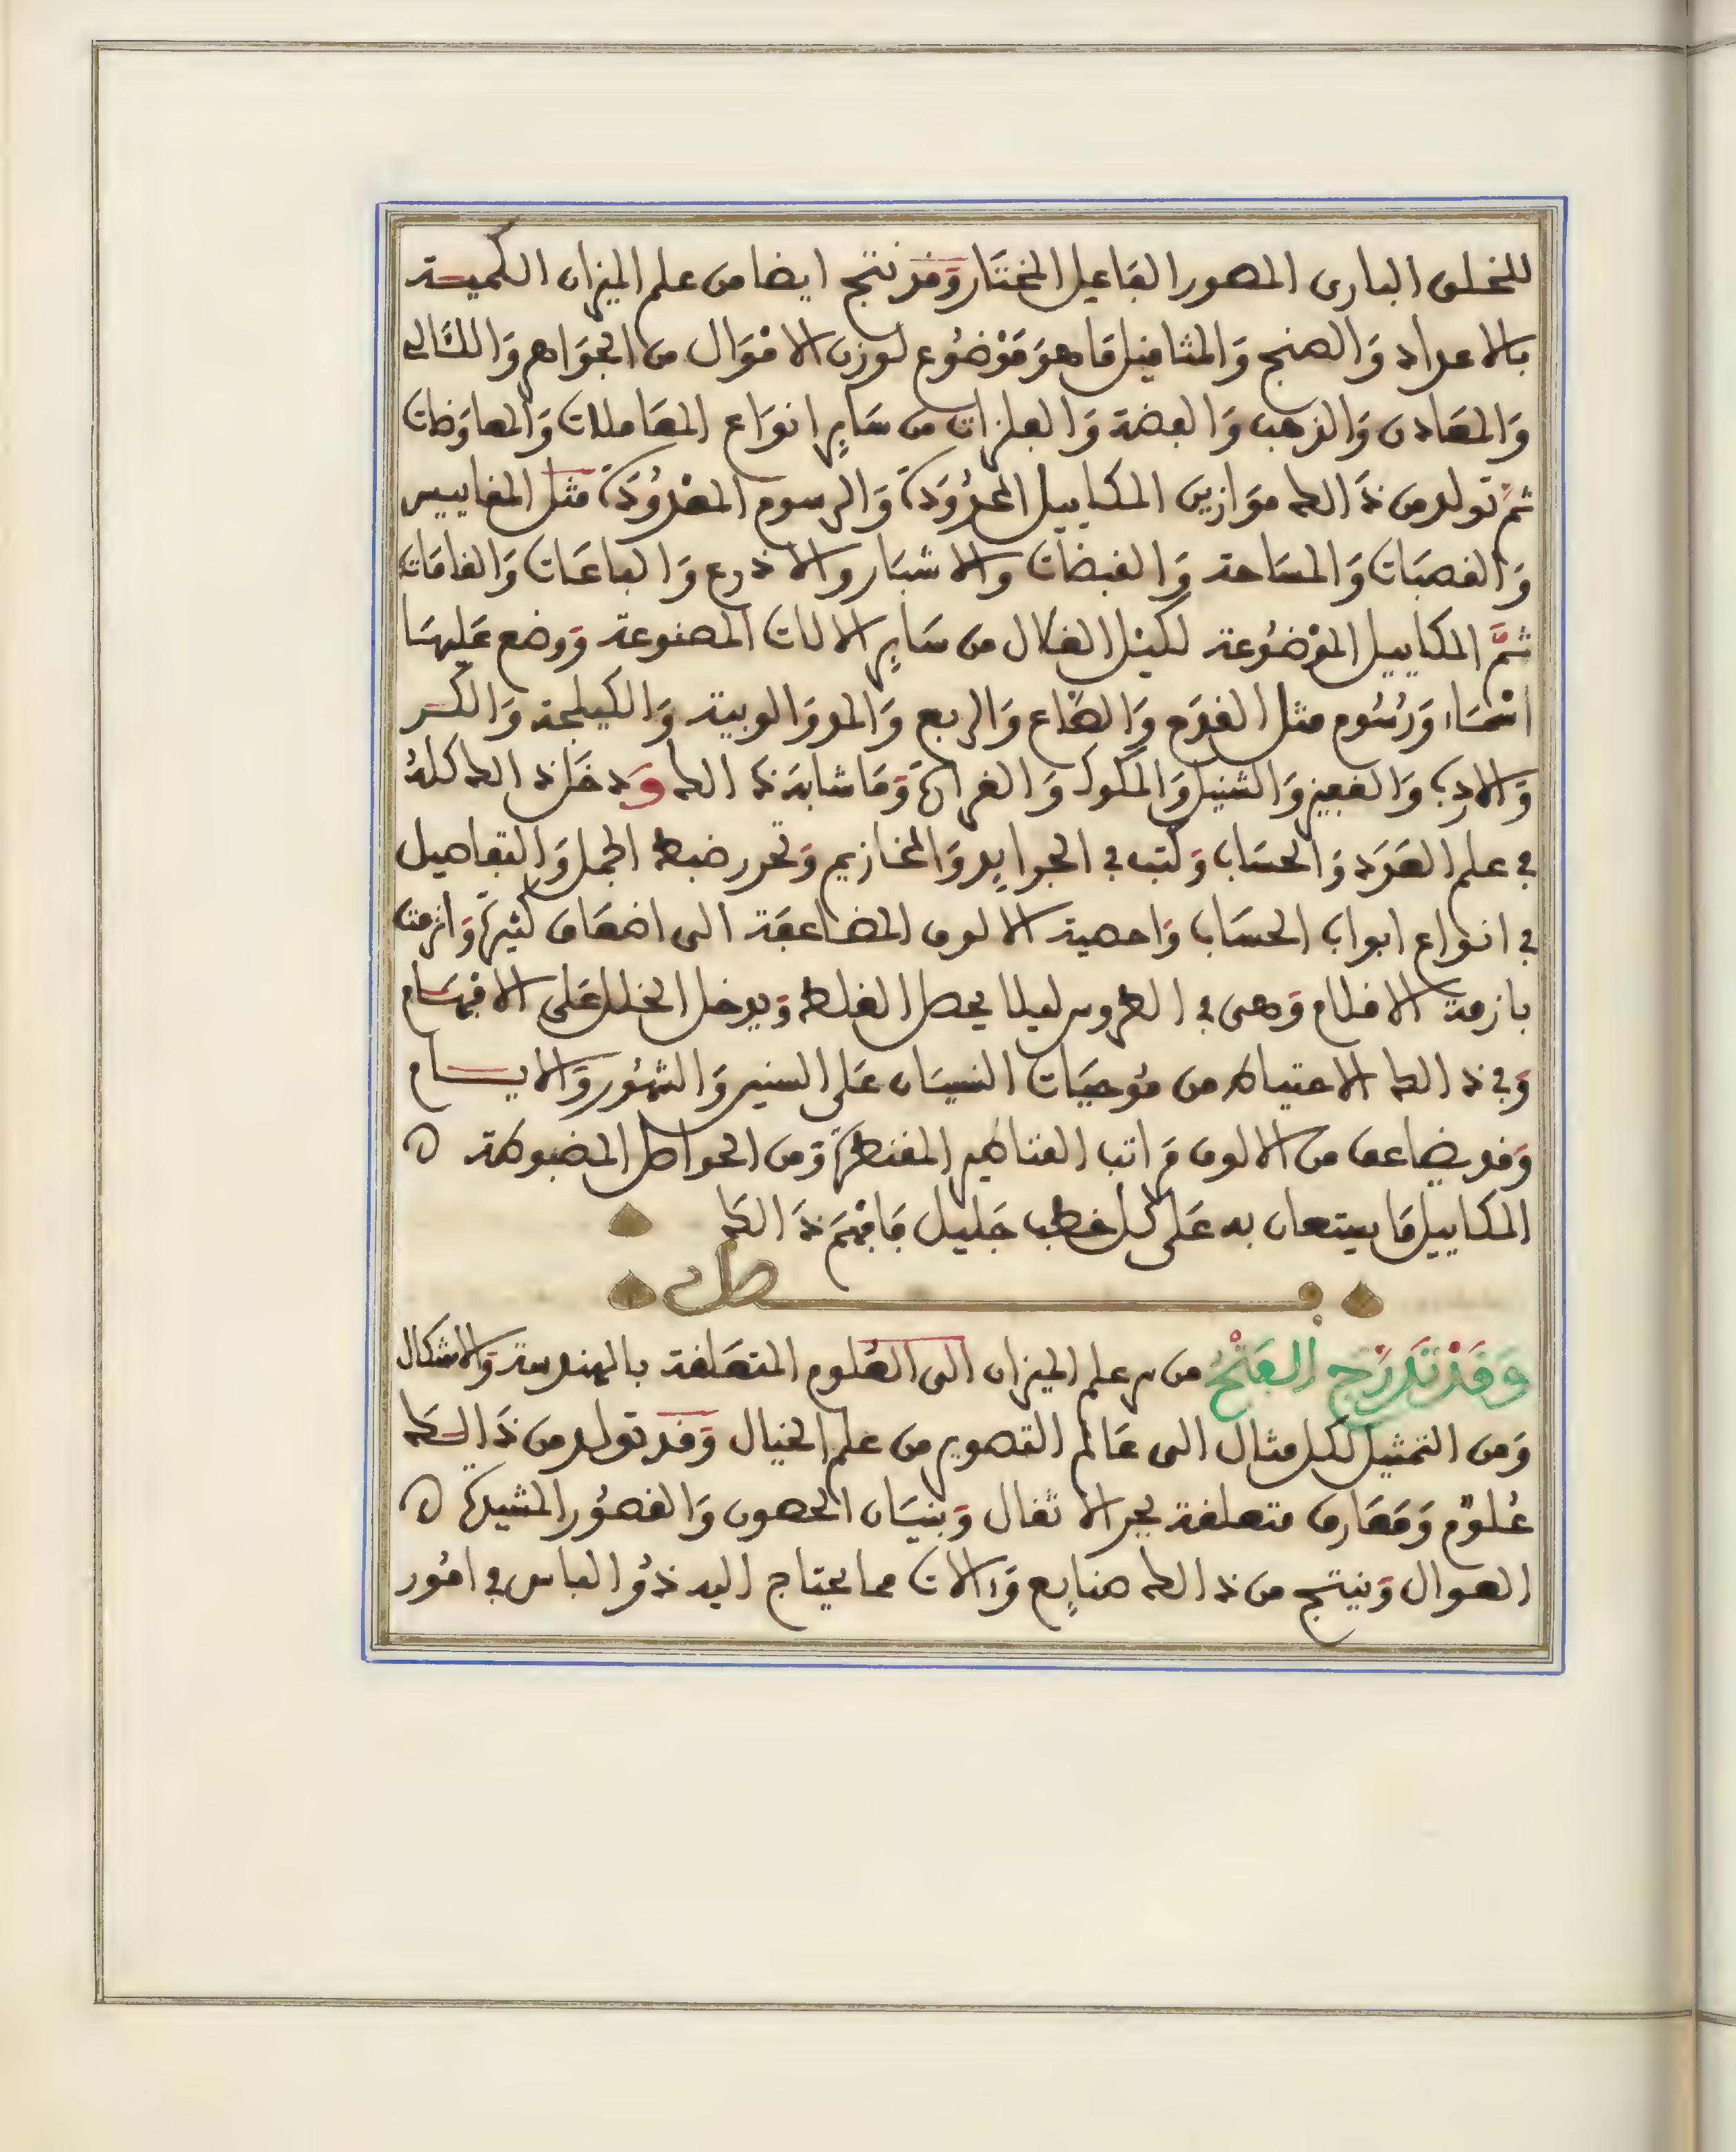 للخلق البارى المصور الفاعل المختار وَقد نتج ايضا من علم الميزان الكميـة
بالاعداد وَالصنج وَالمثاقيل مَا هوَ مَوْضُوع لوزن الامْوَال من الجوَاهر وَاللئَالى
وَالمعَادن وَالذهب وَالفضة وَالفلزات من سَايِر انوَاع المعَاملات وَالمعاوَضات
ثمَّ تولد من ذَالك موَازين المكاييل المحدُودَة وَالرسوم المعْدُودَة مثل المقاييس
وَالقصبَات وَالمسَاحة وَالقبضات وَالاشبَار وَالاذرع وَالباعَات وَالقامَات
ثمَّ المكاييل الموْضُوعة لكيْل الغلال من سَايِر الالات المصنوعة وَوضع عَليهَا
اسْمَاء وَرُسُوم مثل القدَح وَالصَّاع وَالربع وَالمد وَالويبة وَالكيلجة وَالكـر
وَالاردب وَالقفيز وَالشنبل وَالمكوك وَالغرارَة وَمَا شابهَ ذَالك وَدخَل ذالك كلهُ
في علم العَدَد وَالحسَاب وَكتب في الجرايد وَالمخازيم وَتحرر ضبط الجمل وَالتفاصيل
في انواع ابواب الحسَاب وَاحصية الالوف المضاعفَة الى اضعَاف كثيرَة وَازمت
بازمة الاقلام وَهى في الطروس ليلا يحصل الغلط وَيدخل الخلل عَلى الاقسَام
وَفي ذالك الاحتياط من مُوجبَات النسيَان عَلى السنين وَالشهُور وَالايـام
وَقد يضاعف من الالوف مراتب القناطير المقنطرَة وَمن الحواصل المضبوطة ه
المكاييل مَا يستعان به عَلى كل خطب جَليل فَافهَم ذَالكَ
فـصل
وَقَدْ تَدَرَّج الفَتْحُ من سر علم الميزان الى العُلوم المتعَلقة بالهندسة وَالاشكال
وَمن التمثيل لكل مثال الى عَالم التصوير من علم الخيال وَقد تولد من ذَالـك
عُلوْم وَمَعَارف متعلقة بجر الاثقال وَبنيَان الحصون وَالقصُور المشيدة ه
الطوال وَينتج من ذالك صنايِع وَءالات مما يحتاج اليه ذوُ الباس في امُور